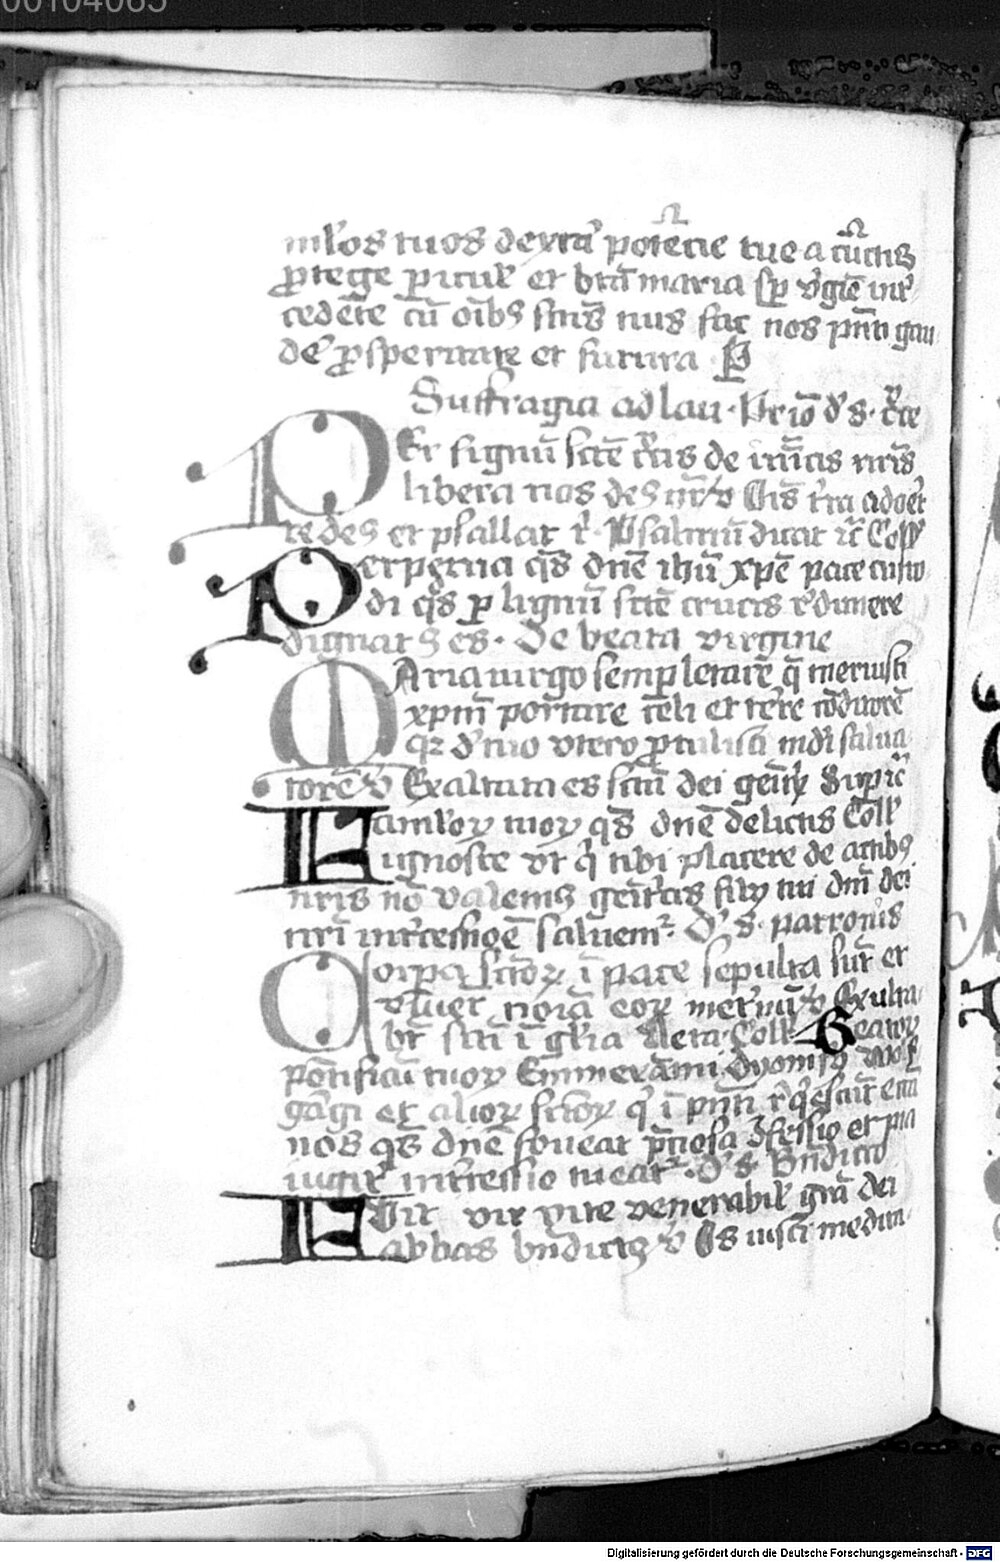 00104065
mlos tuos dextra potēcie tue a cūctis
ꝓtege ꝑicul et btā maria sp v̓gīe int̓
cedēte cū oībꝰ sctīs tuis fac nos pn̄ti gau
de ꝓsperitate et futura P
Suffragia ad lau. Primo d̓ s. cͬce
PEr signū sctē cͬcis de inīcis nrīs
libera nos deꝰ nr̄ v̓ Oīs tͬra adoret
te deꝰ et psallat t Psalmū dicat Coll
Perpetua qs dn̄e ihū xpē pace custo
di q̄s ꝑ lignū sctē crucis redimere
dignatꝰ es. De beata virgine
MAria virgo semꝑ letare q̄ meruisti
xpm̄ portare celi et tēre cōditorē
qꝫ d̓ tuo vtero ꝓtulisti mūdi salua
torē v̓ Exaltata es sctā dei genͥtͥx Supͥ
Famloꝝ tuoꝝ qs dn̄e delictis Coll
ignosce vt qͥ tibi placere de actibꝰ
nr̄is nō valemꝰ genͥtͥcis filij tui dn̄i dei
nr̄i int̓cessiōe saluemͬ. D̓ s. patronis
Corpora sctōꝝ ī pace sepulta sūt et
viuēt noīa eoꝝ in et̓nū v̓ Exulta
bt̄ scti ī glͥa Leta Coll Beatoꝝ
pōtificū tuoꝝ Emmerāmi Dyonisij wolf
gāgi et alioꝝ sctoꝝ qͥ ī pn̄ti reqͥescūt ecca
nos qs dn̄e foueat p̄ciosa ꝯfessio et pia
iugit̓ int̓cessio tueatͬ. D̓ s. Bn̄dicto
FVit vir vite venerabil gͬa dei
abbas bn̄dictꝰ v̓ Os iusti medita
Digitalisierung gefördert durch die Deutsche Forschungsgemeinschaft - DFG